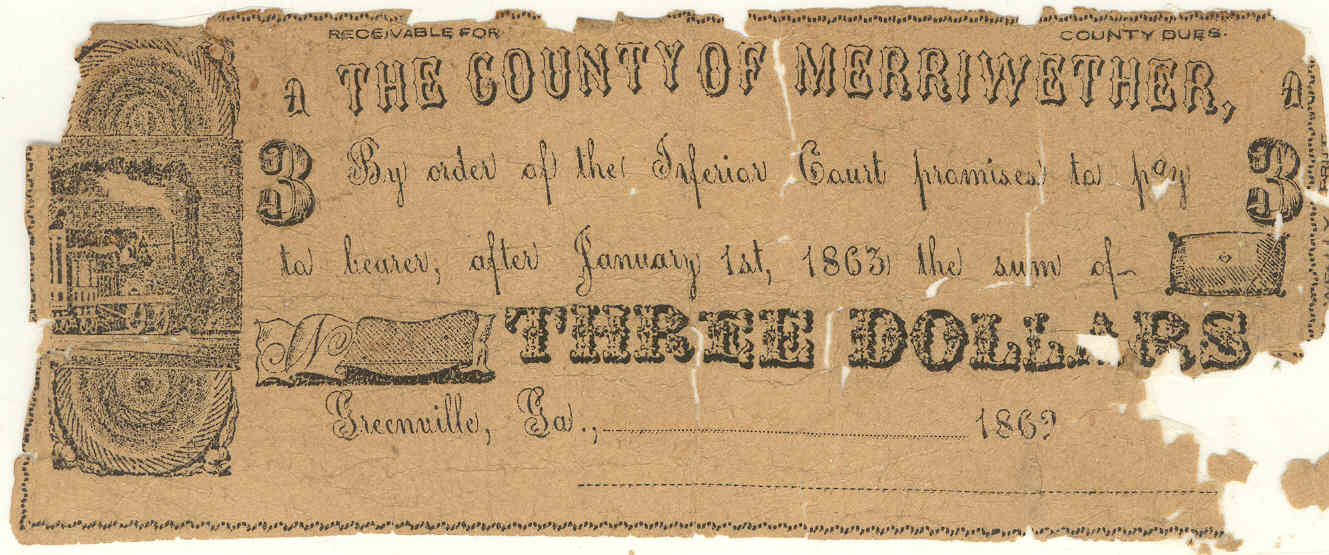 RECEIVABLE FOR COUNTY DUES.
A THE COUNTY OF MERRIWETHER, A
3 By order of the Inferior Court promises to pay 3
to bearer, after January 1st, 1863 the sum of
No THREE DOLLARS
Greenville, Ga., 1862